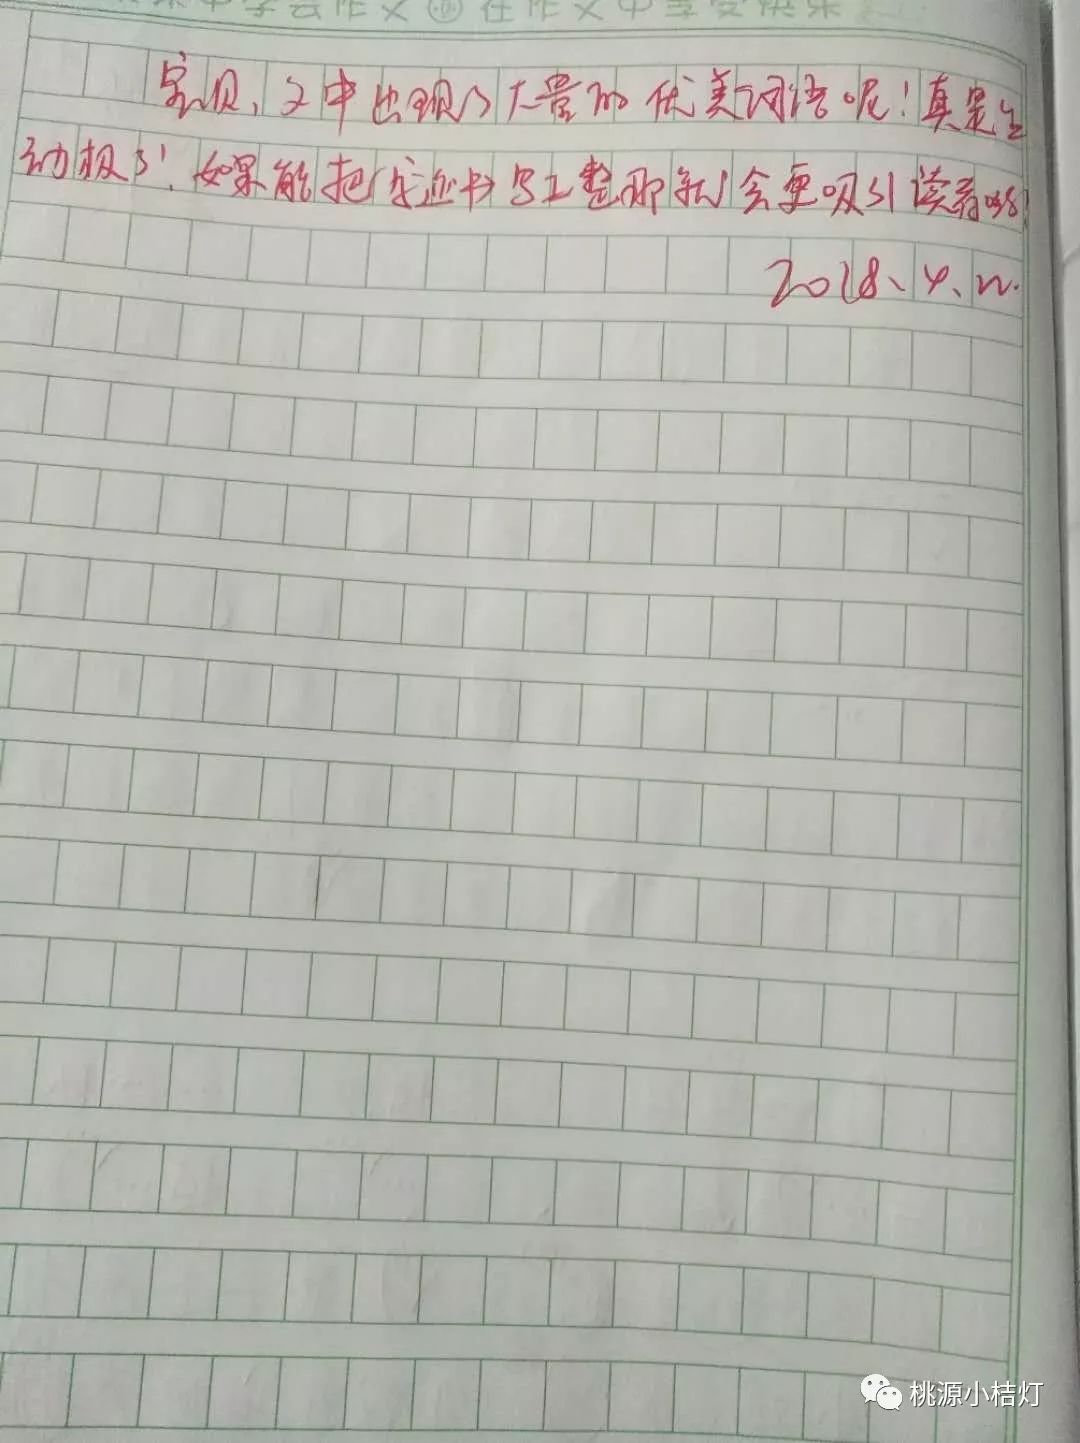 中学会作文 在作文中享受快乐
宝贝，文中出现了大量的优美词语呢！真是生
动极了！如果能把字迹书写工整那就会更吸引读者哦！
2018、4、12.
桃源小桔灯